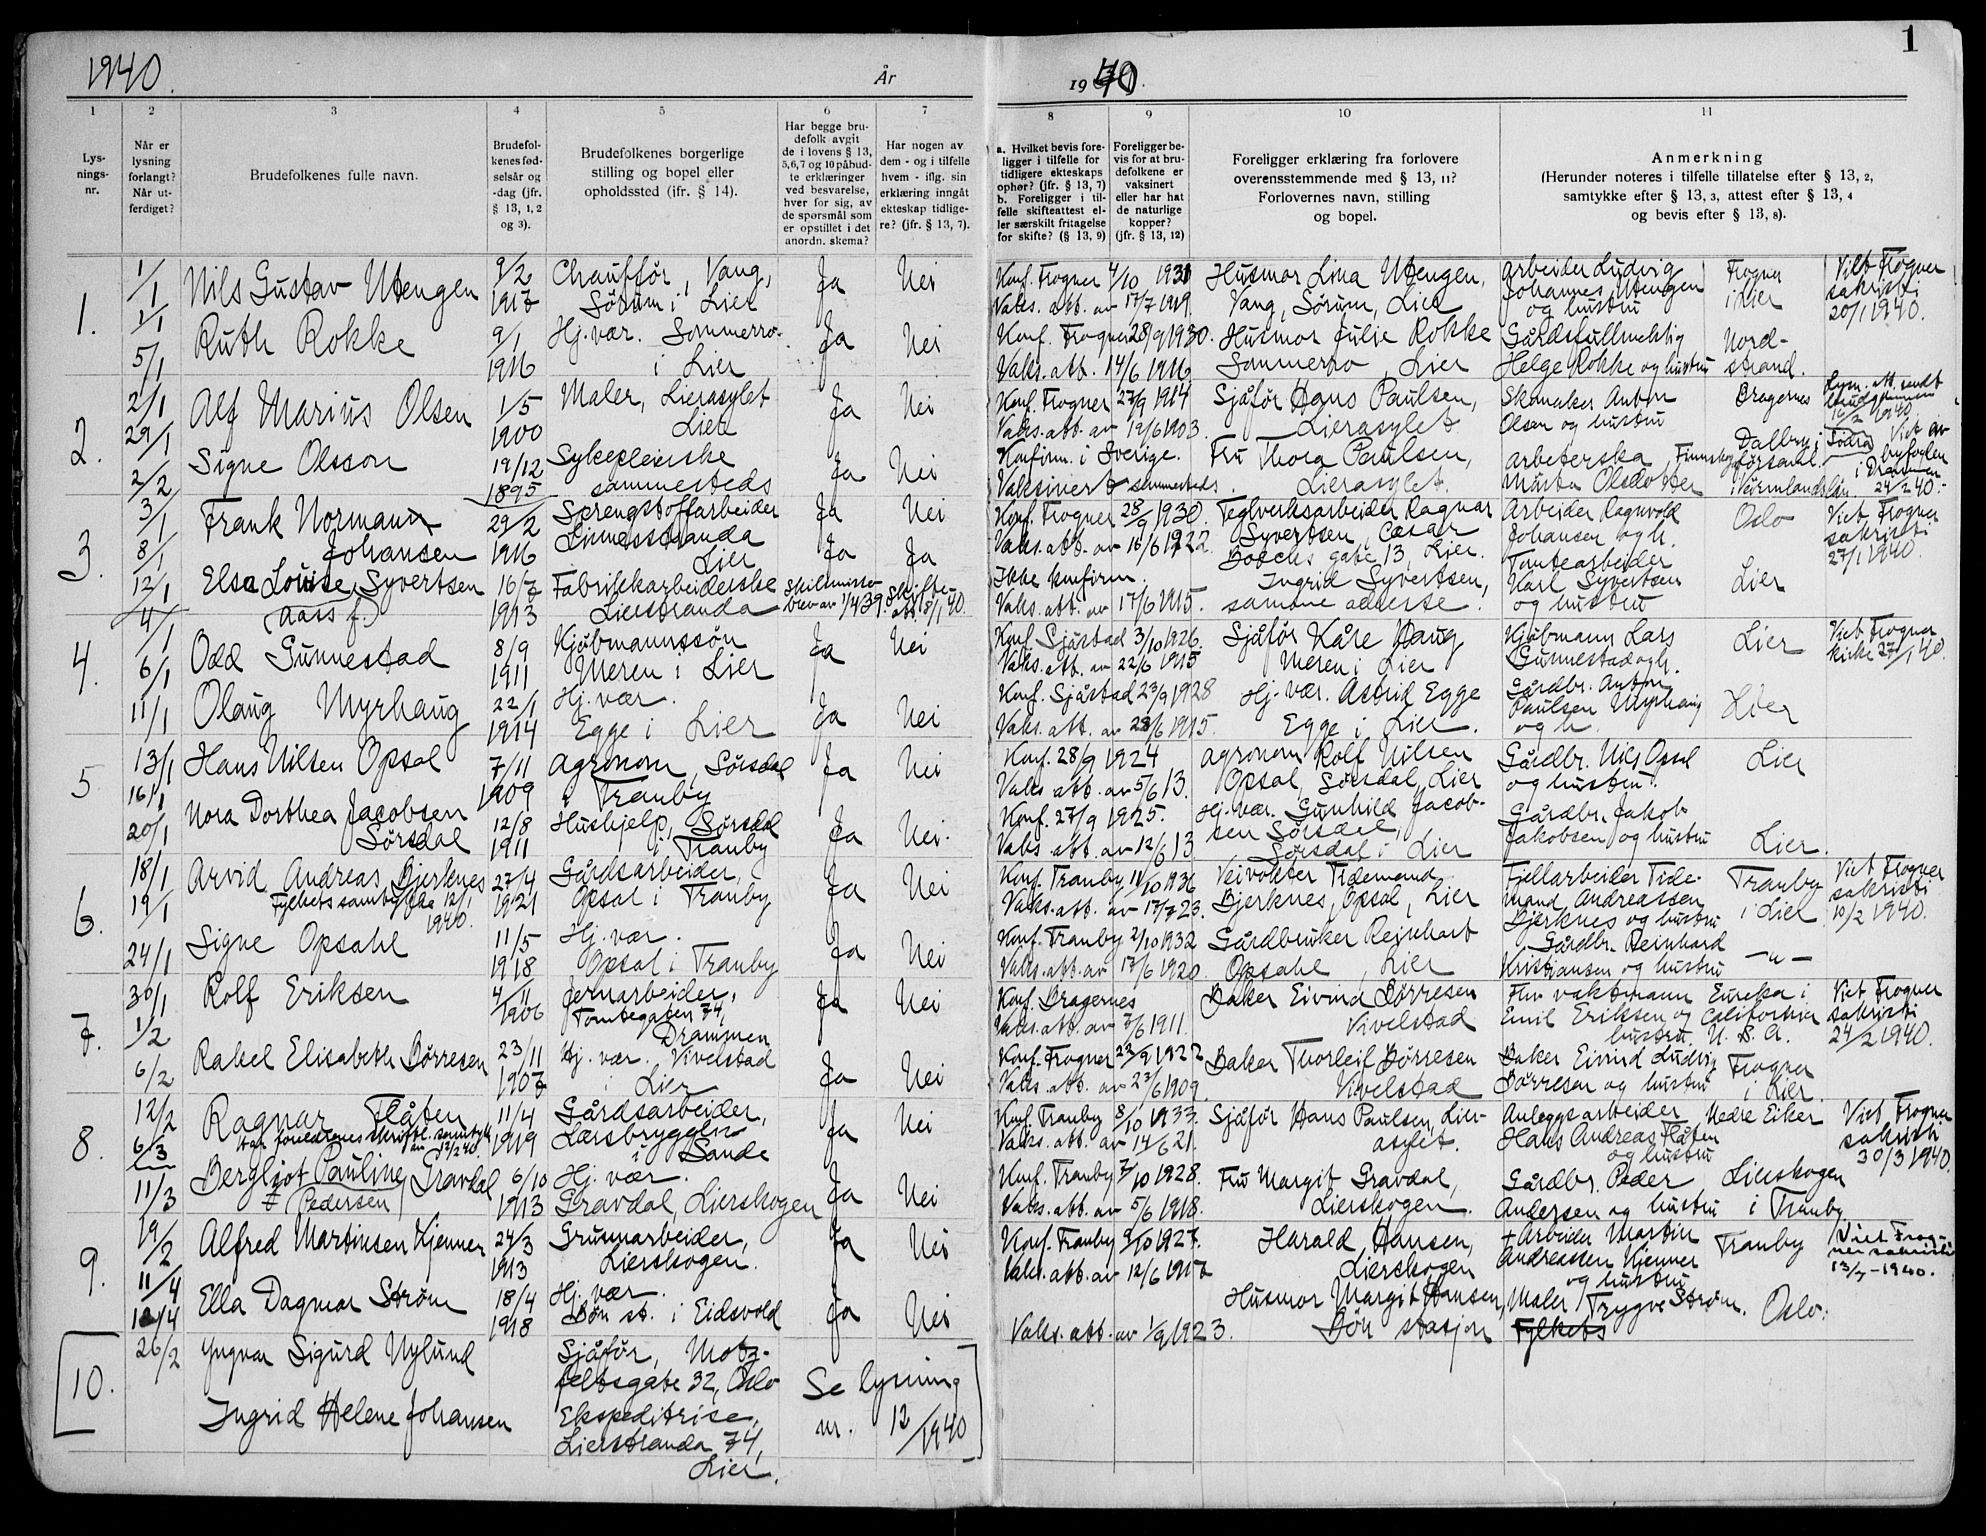 1940.
År
1940.
1
1
2
3
4
5
6
7
8
9
10
11
Lys-
nings-
nr.
Når er
lysning
forlangt?
Når ut-
ferdiget?
Brudefolkenes fulle navn.
Brudefol-
kenes fød-
selsår og
-dag (jfr.
§ 13, 1, 2
og 3).
Brudefolkenes borgerlige
stilling og bopel eller
opholdssted (jfr. § 14).
Har begge bru-
defolk avgit
de i lovens § 13,
5,6,7 og 10 påbud-
te erklæringer
ved besvarelse,
hver for sig, av
de spørsmål som
er opstillet i det
anordn. skema?
Har nogen av
dem - og i tilfelle
hvem - iflg. sin
erklæring inngått
ekteskap tidlige-
re? (jfr. § 13, 7).
a. Hvilket bevis fore-
ligger i tilfelle for
tidligere ekteskaps
ophør? (jfr. § 13, 7)
b. Foreligger i til-
felle skifteattest el-
ler særskilt fritagelse
for skifte? (§ 13, 9)
Foreligger be-
vis for at bru-
defolkene er
vaksinert
eller har hat
de naturlige
kopper?
(jfr. § 13, 12)
Foreligger erklæring fra forlovere
overensstemmende med § 13, 11?
Forlovernes navn, stilling
og bopel.
Anmerkning
(Herunder noteres i tilfelle tillatelse efter § 13, 2,
samtykke efter § 13, 3, attest efter § 13, 4
og bevis efter § 13, 8).
1.
1/1
1/1
5/1
Nils Gustav Utengen
9/2
1917
Chauffør, Vang,
Sørum i Lier
Ja
Nei
Konf. Frogner 4/10 1931
Vaks. att. av 17/7 1919.
Husmor Lina Utengen,
Vang, Sørum, Lier
Arbeider Ludvig
Johannes Utengen
og hustru
Frogner
i Lier
Viet Frogner
sakristi
20/1 1940.
Ruth Rokke
9/1
1916
Hj. vær. Sommerro
i Lier
Ja
Nei
Konf. Frogner 28/9 1930.
Vaks. att. 14/6 1916
Husmor Julie Rokke
Sommerro, Lier
Gårdsfullmektig
Helge Rokke og hustru
Nord-
strand.
2.
2/1
29/1
2/2
Alf Marius Olsen
1/5
1900
Maler, Lierasylet
Lier
Ja
Nei
Konf. Frogner 27/9 1914
Vaks. att. av 19/6 1903.
Sjåfør Hans Paulsen,
Lierasylet
Skomaker Anton
Olsen og hustru
Bragernes
Lysn. att. sendt
brudgommen
16/2 1940
Signe Olsson
19/12
1895
Sykepleierske
sammesteds
Ja
Nei
Konfirm. i Sverige.
Vaksinert sammesteds.
Fru Thora Paulsen,
Lierasylet.
Arbeterska
Märta Olsdotter
Dalby i Södra
Finnskoga församl.
i Värmlands län.
Viet av
byfogden
i Drammen
24/2 40.
3.
3/1
8/1
12/1
Frank Normann
Johansen
29/2
1916
Sprengstoffarbeider
Linnesstranda
Lier
Ja
Nei
Konf. Frogner 28/9 1930.
Vaks. att. av 16/6 1922.
Teglverksarbeider Ragnar
Syvertsen, Cæsar
Boecks gate 13, Lier.
Arbeider Ragnvold
Johansen og h.
Oslo
Viet Frogner
sakristi
27/1 1940.
Elsa Louise Syvertsen
(Aass f.)
16/7
1913
Fabrikkarbeiderske
Lierstranda
Ja
Ja
Skilsmisse-
brev av 1/4 39.
Skifte-
att. 8/1 40.
Ikke konfirm.
Vaks. att. av 17/6 1915.
Ingrid Syvertsen,
samme adresse.
Tomtearbeider
Karl Syvertsen
og hustru
Lier
4.
4/1
6/1
11/1
Odd Gunnestad
8/9
1911
Kjøbmannssøn
Meren i Lier
Ja
Nei
Konf. Sjåstad 3/10 1926.
Vaks. att. av 22/6 1915
Sjåfør Kåre Haug
Meren i Lier
Kjøbmann Lars
Gunnestad og h.
Lier
Viet Frogner
kirke 27/1 40.
Olaug Myrhaug
22/1
1914
Hj. vær.
Egge i Lier
Ja
Nei
Konf. Sjåstad 23/9 1928
Vaks. att. av 28/6 1915.
Hj. vær. Astrid Egge
Egge i Lier.
Gårdbr. Anton
Paulsen Myrhaug
og h.
Lier
5.
13/1
16/1
20/1
Hans Nilsen Opsal
7/11
1909
Agronom, Sørsdal
i Tranby
Ja
Nei
Konf. 28/9 1924
Vaks. att. av 5/6 13.
Agronom Rolf Nilsen
Opsal, Sørsdal, Lier
Gårdbr. Nils Opsal
og hustru.
Lier
Nora Dorthea Jacobsen
Sørsdal
12/8
1911
Hushjelp, Sørsdal
i Tranby
Ja
Nei.
Konf. 27/9 1925.
Vaks. att. av 12/6 13
Hj. vær. Gunhild Jacob-
sen Sørsdal,
Sørsdal i Lier
Gårdbr. Jakob
Jakobsen og hustru
Lier.
6.
18/1
19/1
24/1
Arvid Andreas Bjerknes
Fylkets samtykke 12/1
1940.
27/4
1921
Gårdsarbeider,
Opsal i Tranby
Ja
Nei
Konf. Tranby 11/10 1936
Vaks. att. av 17/7 23.
Veivokter Tidemand
Bjerknes, Opsal, Lier
Fjellarbeider Tide-
mand Andreassen
Bjerknes og hustru
Tranby
i Lier
Viet Frogner
sakristi
10/2 1940.
Signe Opsahl
11/5
1918
Hj. vær.
Opsal i Tranby
Ja
Nei
Konf. Tranby 2/10 1932
Vaks. att. av 17/6 1920.
Gårdbruker Reinhart
Opsahl, Lier
Gårdbr. Reinhard
Kristiansen og hustru
-"-
7.
30/1
1/2
6/2
Rolf Eriksen
4/11
1906
Jernarbeider,
Tomtegaten 74,
Drammen
Ja
Nei
Konf. Bragernes
Vaks. att. av 7/6 1911.
Baker Eivind Børresen
Vivelstad
Fhv. vaktmann
Emil Eriksen og
hustru
Eureka i
California
U. S. A.
Viet Frogner
sakristi
24/2 1940.
Rakel Elisabeth Børresen
23/11
1907
Hj. vær. Vivelstad
i Lier
Ja
Nei
Konf. Frogner 22/9 1922
Vaks. att. av 22/6 1909.
Baker Thorleif Børresen
Vivelstad
Baker Eivind Ludvig
Børresen og hustru
Frogner
i Lier.
8.
12/2
6/3
11/3
Ragnar Flåten
Har foreldrenes skriftl. samtykke
av 12/2 40.
11/4
1919
Gårdsarbeider,
Læsbryggelia
i Sande
Ja
Nei
Konf. Tranby 8/10 1933
Vaks. att. av 14/6 21.
Sjåfør Hans Paulsen, Lier-
asylet.
Anleggsarbeider
Hans Andreas Flåten
og hustru
Nedre Eiker
Viet Frogner
sakristi
30/3 1940.
Bergljot Pauline Gravdal
f. Pedersen
6/10
1913
Hj. vær.
Gravdal, Lierskogen
Ja
Nei
Konf. Tranby 7/10 1928.
Vaks. att. av 5/6 1918.
Fru Margit Gravdal,
Lierskogen.
Gårdbr. Peder
Andersen og hustru
Lierskogen
i Tranby
9.
19/2
11/4
12/4
Alfred Martinsen Kjenner
24/3
1913
Grunnarbeider,
Lierskogen.
Ja
Nei
Konf. Tranby 9/10 1927.
Vaks. att. av 12/6 1917
Harald Hansen,
Lierskogen
+ Arbeider Martin
Andreassen Kjenner
og hustru
Tranby
Viet Frog-
ner sakristi
13/7-1940.
Ella Dagmar Strøm
18/4
1918
Hj. vær.
Bøn st. i Eidsvold
Ja
Nei
Vaks. att. av 1/9 1923.
Husmor Margit Hansen,
Bøn stasjon
Maler Trygve Strøm.
Fylkets
Oslo.
10.
26/2
Yngvar Sigurd Nylund
Sjåfør, Motz-
feldtsgate 32, Oslo
Se lysning
nr. 12/1940
Ingrid Helene Johansen
Ekspeditrise,
Lierstranda 74,
Lier.